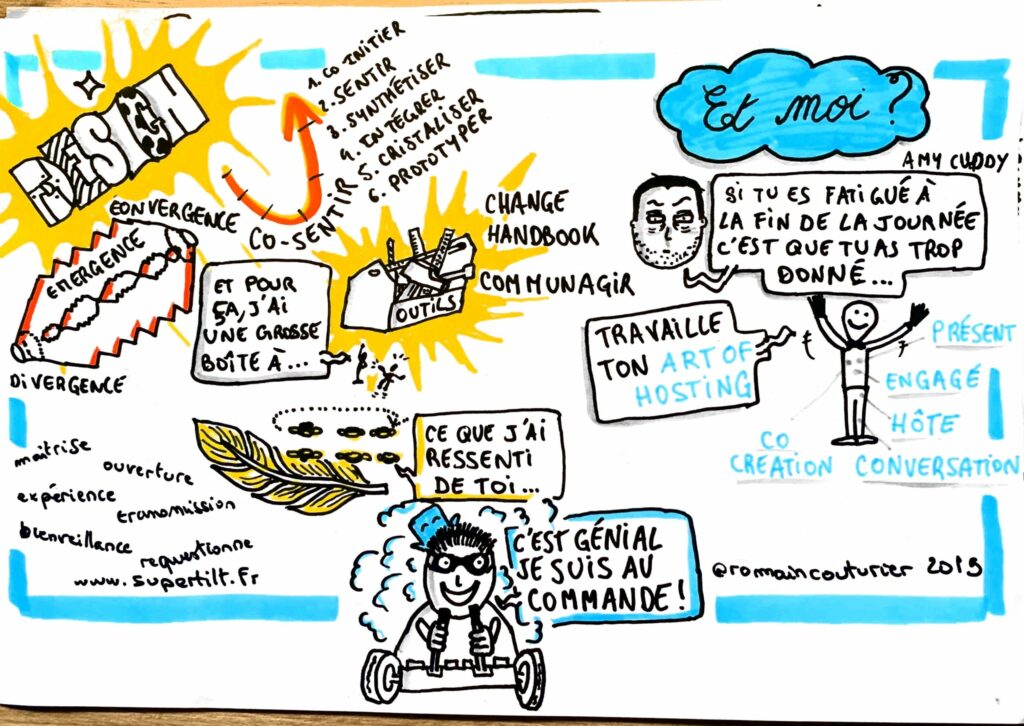 DESIGN
CONVERGENCE
EMERGENCE
DIVERGENCE
CO-SENTIR
1. CO INITIER
2. SENTIR
3. SYNTHÉTISER
4. INTÉGRER
5. CRISTALISER
6. PROTOTYPER
ET POUR
ÇA, J'AI
UNE GROSSE
BOÎTE À...
OUTILS
CHANGE
HANDBOOK
COMMUNAGIR
Et moi ?
AMY CUDDY
SI TU ES FATIGUÉ À
LA FIN DE LA JOURNÉE
C'EST QUE TU AS TROP
DONNÉ...
TRAVAILLE
TON ART OF
HOSTING
PRÉSENT
ENGAGÉ
HÔTE
CO
CREATION
CONVERSATION
maîtrise
ouverture
expérience
transmission
bienveillance
requestionne
www.supertilt.fr
CE QUE J'AI
RESSENTI
DE TOI...
C'EST GÉNIAL
JE SUIS AU
COMMANDE !
@romaincouturier 2019